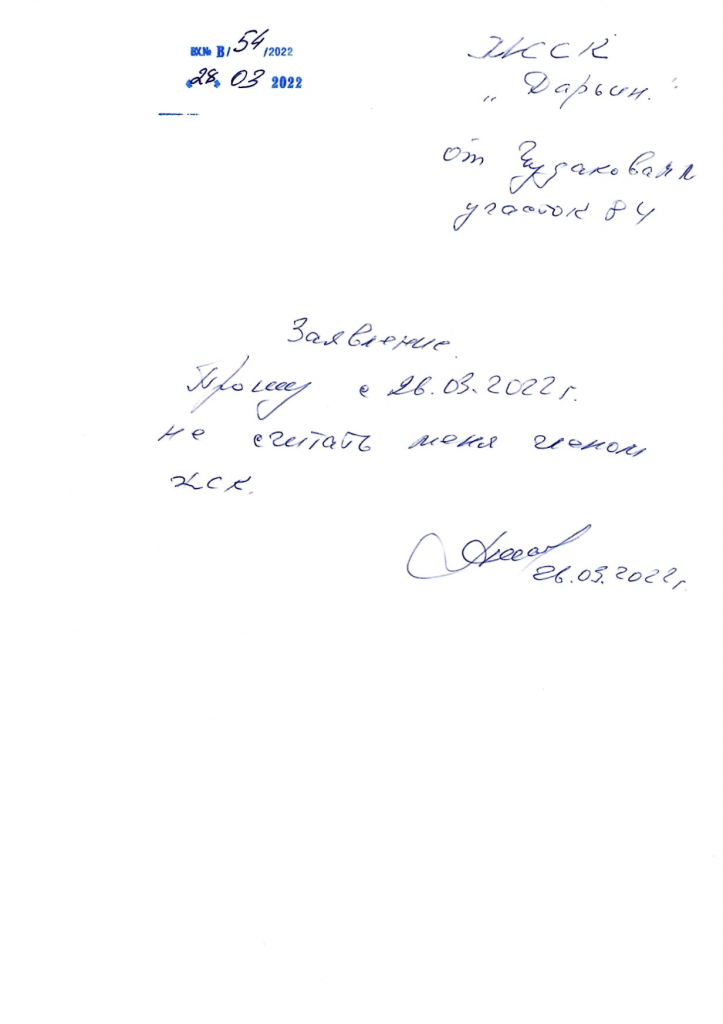 ВХ.№ В/54/2022
«28» 03 2022
ЖСК
„Дарьин."
от
участок 84
Заявление.
Прошу с 26.03.2022 г.
не считать меня членом
ЖСК.
26.03.2022 г.